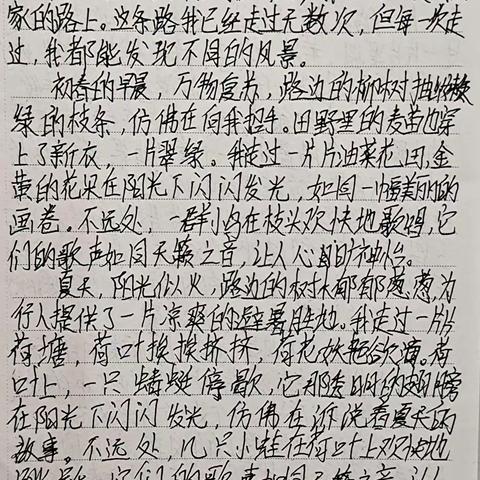 家的路上。这条路我已经走过无数次，但每一次走
过，我都能发现不同的风景。
初春的早晨，万物复苏，路边的柳树抽出嫩
绿的枝条，仿佛在向我招手。田野里的麦苗也穿
上了新衣，一片翠绿。我走过一片片油菜花田，金
黄的花朵在阳光下闪闪发光，如同一幅美丽的
画卷。不远处，一群小鸟在枝头欢快地歌唱，它
们的歌声如同天籁之音，让人心旷神怡。
夏天，阳光似火，路边的树木郁郁葱葱，为
行人提供了一片凉爽的避暑胜地。我走过一片片
荷塘，荷叶挨挨挤挤，荷花娇艳欲滴。荷
叶上，一只蜻蜓停歇，它那透明的翅膀
在阳光下闪闪发光，仿佛在诉说着夏天的
故事。不远处，几只小蛙在荷叶上欢快地